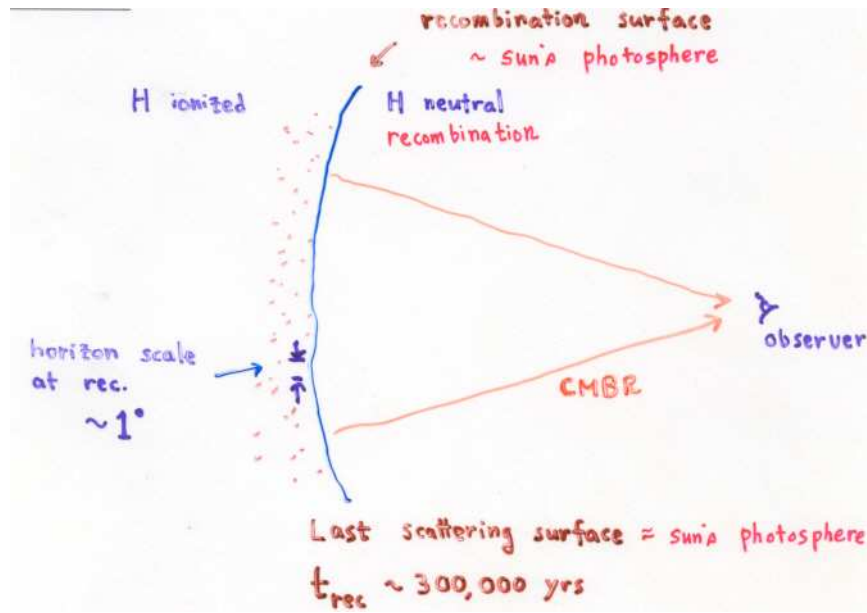 recombination surface
~ sun's photosphere
H ionized
H neutral
recombination
horizon scale
at rec.
~1°
observer
CMBR
Last scattering surface ≈ sun's photosphere
t_rec ~ 300,000 yrs